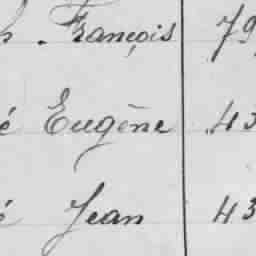 François 79
é Eugène 43
é Jean 43